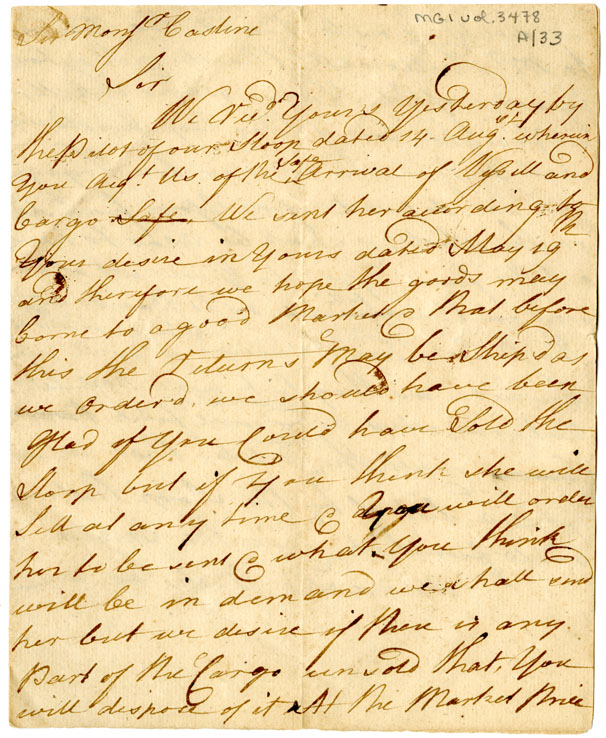 MG1 vol. 3478
A/33
Sir Monsr. Castine
Sir
We Recd. Yours Yesterday by
the Pilot of our Sloop dated 14 Augst. wherein
You Aqt. Us of the safe Arrival of Vessell and
Cargo Safe. We sent her according to
Your desire in Yours dated May 19th
and therefore we hope the goods may
Come to a good Market & that before
this the returns may be Ship'd as
we order'd. we should have been
Glad if You Could have Sold the
Sloop but if You think she will
Sell at any time & You will order
her to be sent & what You think
will be in demand we shall send
her but we desire if there is any
Part of the Cargo unsold that You
will dispose of it At the Market Price